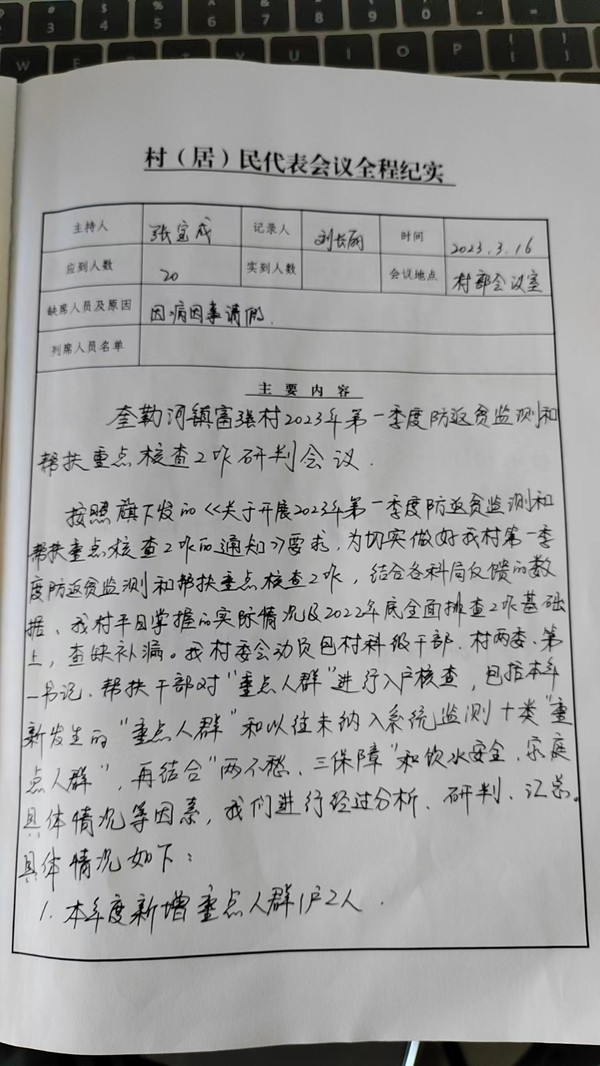 村（居）民代表会议全程纪实
主持人 张宝成 记录人 刘长丽 时间 2023.3.16
应到人数 20 实到人数 会议地点 村部会议室
缺席人员及原因 因病因事请假.
列席人员名单
主要内容
奎勒河镇富强村2023年第一季度防返贫监测和
帮扶重点核查工作研判会议.
按照旗下发的《关于开展2023年第一季度防返贫监测和
帮扶重点核查工作的通知》要求,为切实做好我村第一季
度防返贫监测和帮扶重点核查工作,结合各科局反馈的数
据、我村平日掌握的实际情况及2022年底全面排查工作基础
上,查缺补漏。我村委会动员包村科级干部、村两委、第
一书记、帮扶干部对"重点人群"进行入户核查,包括本年
新发生的"重点人群"和以往未纳入系统监测十类"重
点人群",再结合"两不愁、三保障"和饮水安全、家庭
具体情况等因素,我们进行经过分析、研判、汇总。
具体情况如下:
1.本年度新增重点人群1户2人.